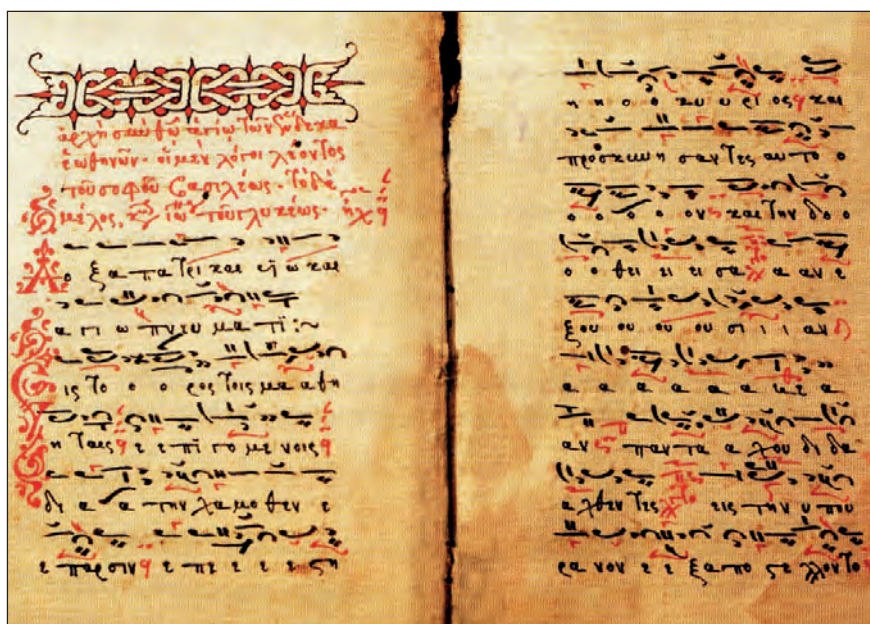 ἀρχὴ σὺν θῶ ἁγίω τῶν ἕνδεκα
ἑωθηνῶν· οἱ μὲν λόγοι λέοντος
τοῦ σοφοῦ βασιλέως· τὸ δὲ
μέλος, τοῦ γλυκέως· ἦχος
Δ ο ξα πα τρι και ϋϊ ω και
α γι ω πνευ μα τϊ :~
Ε ις το ο ο ρος τοις μα α θη
η ταις ε ε πϊ γο με νοις
δι α α την χα μο θεν ε
ε παρσιν ε πε ε ε ϛη
η η ο ο κυ υ ρι ος και
προσκυνη σαντες αυτο ο
ο ο ο ο ον και την δο ο
ο ο θει ει ει σα α αν ε
ξου ου ου ου σι ι ι αν
α α α α α
αν παν τα α χου δι δα
α χθεν τες εις την υ που
ρα νον ε ε ξα πο ϛε λλον το